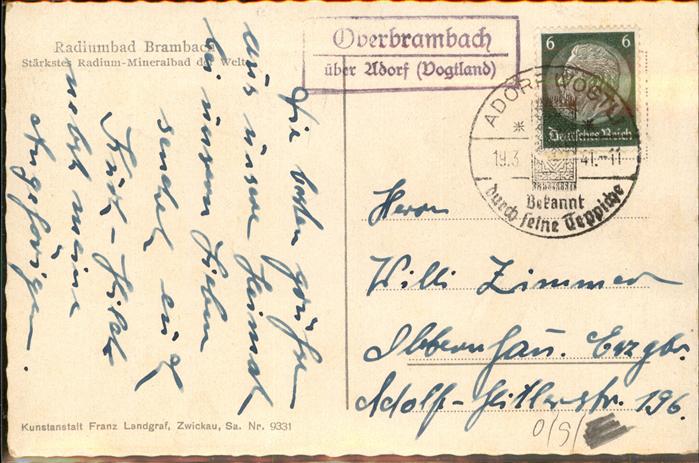 Radiumbad Brambach
Stärkstes Radium-Mineralbad der Welt
Oberbrambach
über Adorf (Vogtland)
6 6
Deutsches Reich
ADORF (VOGTL)
19.3. 41.-11
Bekannt
durch seine Teppiche
Die besten Grüße
aus unserer Heimat
Ihr unsern Lieben
sendet euch
Kurt
nebst meine
Angehörigen.
Herrn
Willi Zimmer
Olbernhau. Erzgb.
Adolf-Hitlerstr. 196.
Kunstanstalt Franz Landgraf, Zwickau, Sa. Nr. 9331